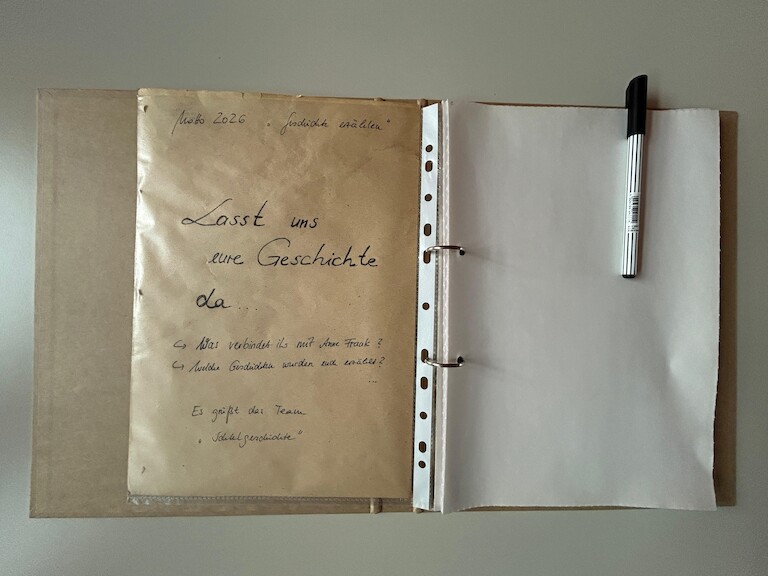 Motto 2026 "Geschichte erzählen"
Lasst uns
eure Geschichte
da...
↳ Was verbindet ihr mit Anne Frank?
↳ Welche Geschichten wurden euch erzählt?
...
Es grüßt das Team
"